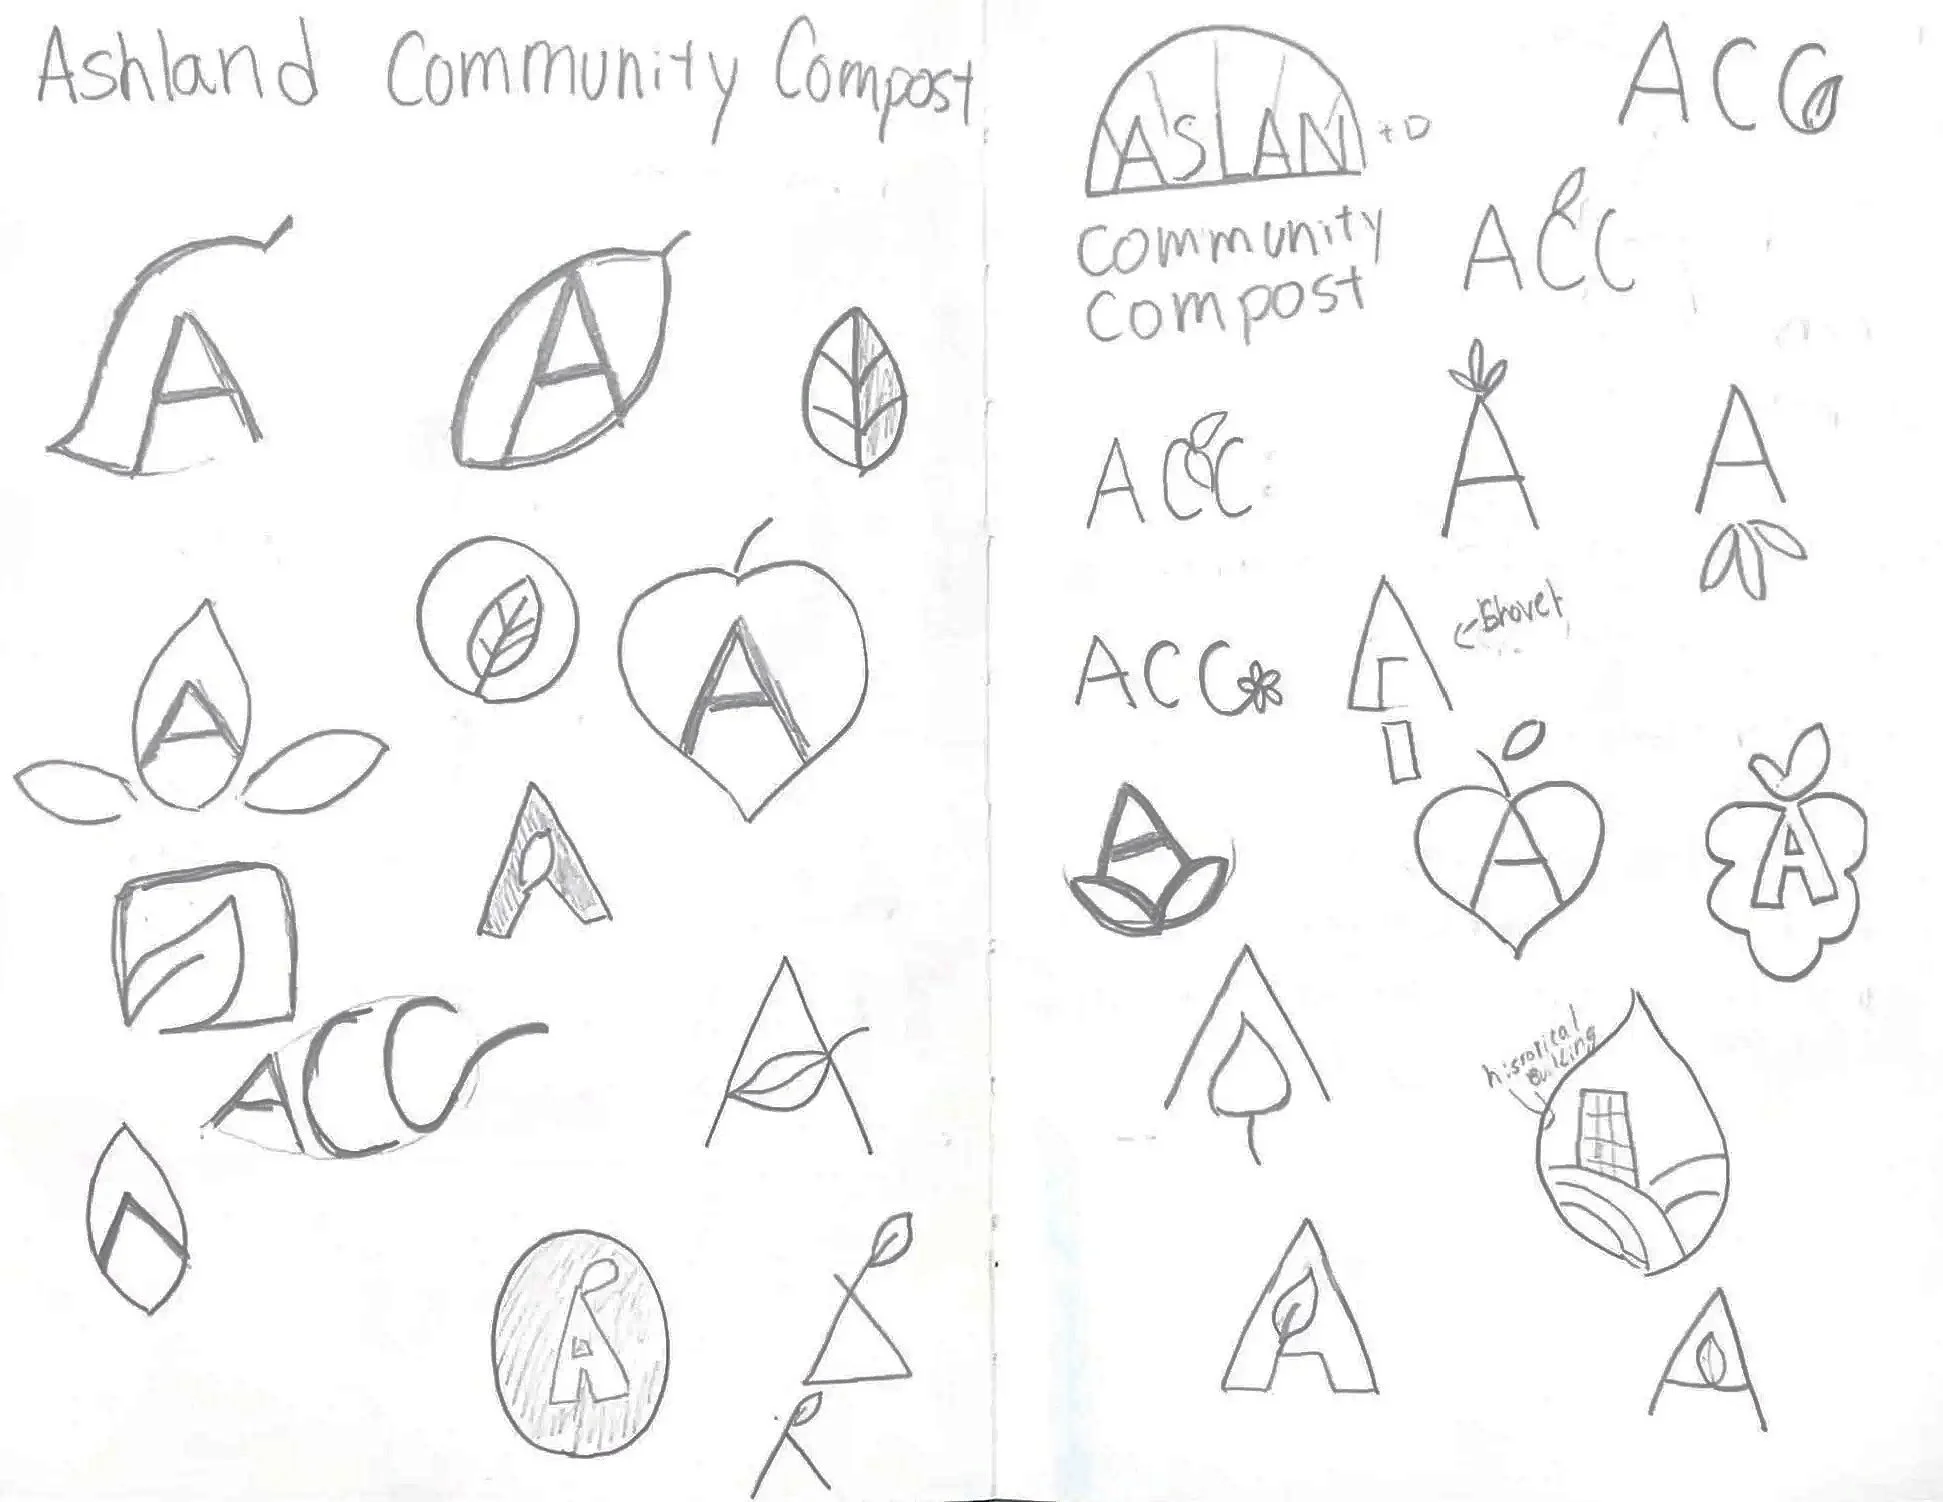 Ashland Community Compost
ASLAN + D
Community
Compost
ACC
ACC
A
A
ACC
A
A
A
A
A
ACC
A
Shovel
A
A
A
A
ACC
A
A
A
historical
Building
A
A
A
A